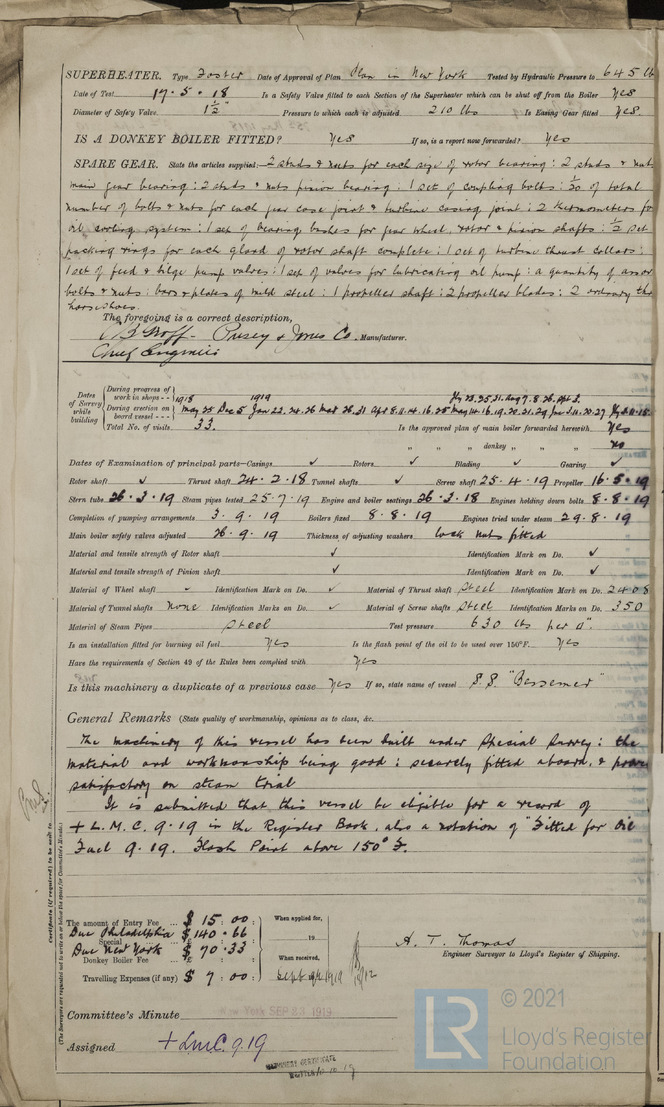 SUPERHEATER. Type Foster Date of Approval of Plan Plan in New York Tested by Hydraulic Pressure to 645 lb
Date of Test 17.5.18 Is a Safety Valve fitted to each Section of the Superheater which can be shut off from the Boiler Yes
Diameter of Safety Valve 1½" Pressure to which each is adjusted 210 lbs Is Easing Gear fitted Yes.
IS A DONKEY BOILER FITTED? Yes If so, is a report now forwarded? Yes
SPARE GEAR. State the articles supplied:- 2 studs & nuts for each size of rotor bearing: 2 studs & nuts
main gear bearing: 2 studs & nuts pinion bearing: 1 set of coupling bolts: 1/50 of total
number of bolts & nuts for each gear case joint & turbine casing joint: 2 thermometers for
oil cooling system: 1 set of bearing bushes for gear wheel, rotor & pinion shafts: ½ set
packing rings for each gland of rotor shaft complete: 1 set of turbine thrust collars:
1 set of feed & bilge pump valves: 1 set of valves for lubricating oil pump: a quantity of assor
bolts & nuts: bars & plates of mild steel: 1 propeller shaft: 2 propeller blades: 2 ordinary thr
horseshoes.
The foregoing is a correct description,
Pusey & Jones Co. Manufacturer.
Chief Engineer
Dates of Survey while building
During progress of work in shops - - 1918 1919 Jly 23.25.31. Aug 7.8.26. Sep 3.
During erection on board vessel - - - May 25 Dec 5 Jan 22.24.26 Mar 26.31 Apr 8.11.14.16.25 May 14.16.19.20.21.29 Jun 3.11.20.27
Total No. of visits 33. Is the approved plan of main boiler forwarded herewith Yes
" " " donkey " " " no
Dates of Examination of principal parts—Casings ✓ Rotors ✓ Blading ✓ Gearing ✓
Rotor shaft ✓ Thrust shaft 24.2.18 Tunnel shafts ✓ Screw shaft 25.4.19 Propeller 16.5.19
Stern tube 26.3.19 Steam pipes tested 25.7.19 Engine and boiler seatings 26.3.18 Engines holding down bolts 8.8.19
Completion of pumping arrangements 3.9.19 Boilers fixed 8.8.19 Engines tried under steam 29.8.19
Main boiler safety valves adjusted 26.9.19 Thickness of adjusting washers lock nuts fitted
Material and tensile strength of Rotor shaft ✓ Identification Mark on Do. ✓
Material and tensile strength of Pinion shaft ✓ Identification Mark on Do. ✓
Material of Wheel shaft Identification Mark on Do. ✓ Material of Thrust shaft Steel Identification Mark on Do. 2408
Material of Tunnel shafts None Identification Marks on Do. ✓ Material of Screw shafts Steel Identification Marks on Do. 350
Material of Steam Pipes Steel Test pressure 630 lbs per □".
Is an installation fitted for burning oil fuel Yes Is the flash point of the oil to be used over 150°F. Yes
Have the requirements of Section 49 of the Rules been complied with Yes
Is this machinery a duplicate of a previous case Yes If so, state name of vessel S.S. "Bessemer"
General Remarks (State quality of workmanship, opinions as to class, &c.
The machinery of this vessel has been built under Special Survey: the
material and workmanship being good: securely fitted aboard, & proved
satisfactory on steam trial
It is submitted that this vessel be eligible for a record of
+ L.M.C. 9.19 in the Register Book, also a notation of "Fitted for Oil
Fuel 9.19. Flash Point above 150° F.
Certificate (if required) to be sent to
(The Surveyors are requested not to write on or below the space for Committee's Minute.)
The amount of Entry Fee ... $ 15:00: When applied for,
Due Philadelphia Special ... $ 140.66 19
Due New York Donkey Boiler Fee ... $ 70.33 When received,
Travelling Expenses (if any) $ 7:00: Sept 1919
A. T. Thomas
Engineer Surveyor to Lloyd's Register of Shipping.
Committee's Minute New York SEP 23 1919
Assigned + LMC. 9.19
MACHINERY CERTIFICATE
WRITTEN
LR
© 2021
Lloyd's Register
Foundation